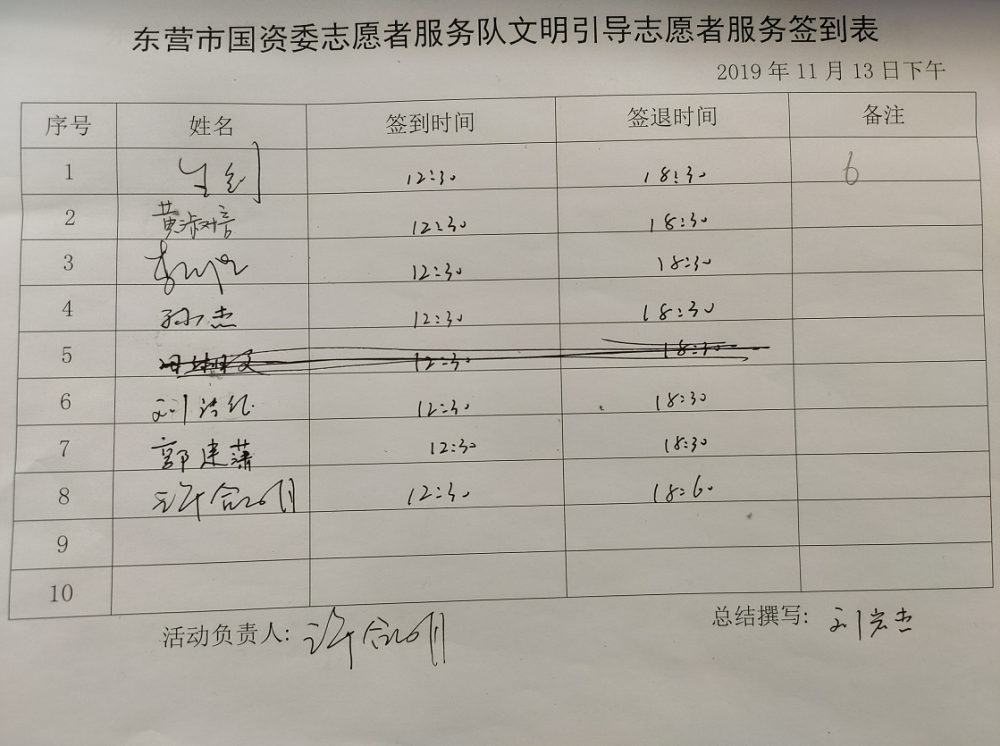 东营市国资委志愿者服务队文明引导志愿者服务签到表
2019年11月13日下午
序号 姓名 签到时间 签退时间 备注
1 12:30 18:30 6
2 黄淑培 12:30 18:30
3 12:30 18:30
4 孙杰 12:30 18:30
5 12:30 18:30
6 刘 12:30 18:30
7 郭建藩 12:30 18:30
8 许合明 12:30 18:60
9
10
活动负责人: 许合明
总结撰写: 刘宏杰